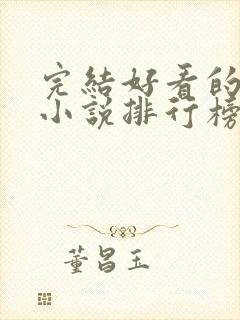 完結好看的
小說排行榜
董昌玉